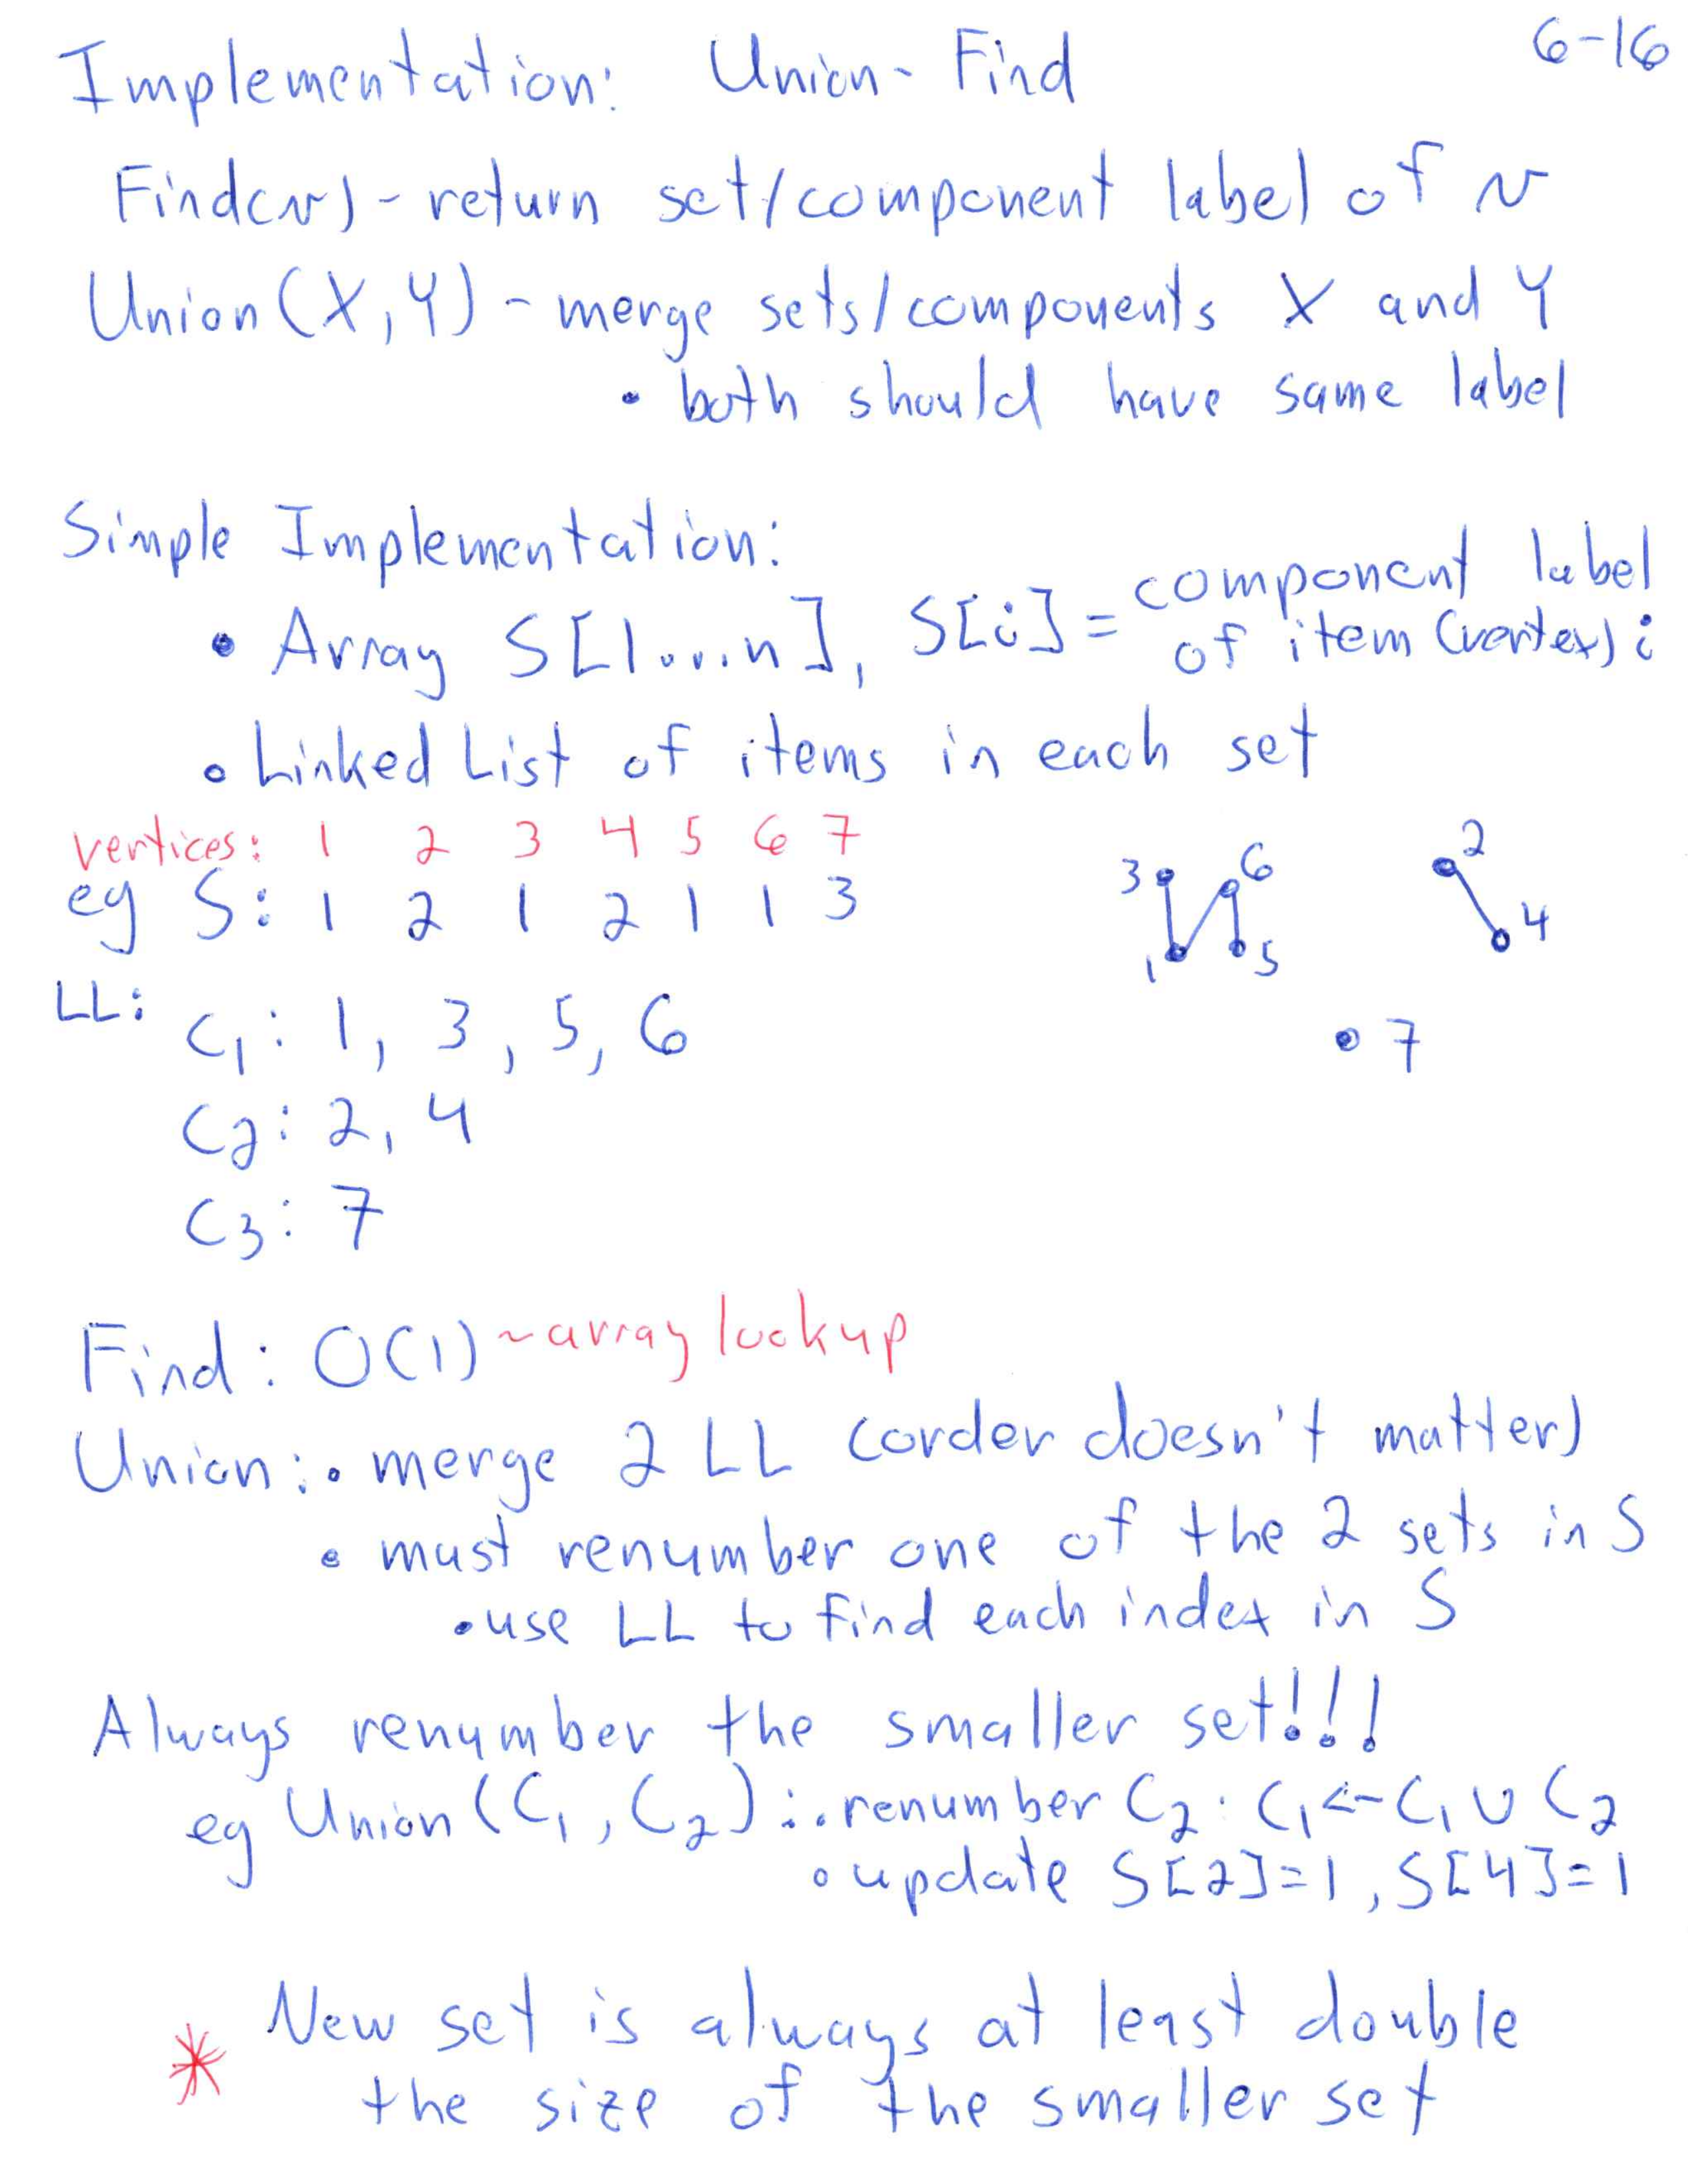 6-16
Implementation: Union-Find
Find(v) - return set/component label of v
Union (X, Y) - merge sets/components X and Y
• both should have same label
Simple Implementation:
• Array S[1...n], S[i] = component label of item (vertex) i
• Linked List of items in each set
vertices: 1 2 3 4 5 6 7
eg S: 1 2 1 2 1 1 3
3 6 2
1 5 4
7
LL: C1: 1, 3, 5, 6
C2: 2, 4
C3: 7
Find: O(1) ~ array lookup
Union: • merge 2 LL (order doesn't matter)
• must renumber one of the 2 sets in S
• use LL to find each index in S
Always renumber the smaller set!!!
eg Union (C1, C2): • renumber C2: C1 ← C1 ∪ C2
• update S[2]=1, S[4]=1
* New set is always at least double
the size of the smaller set